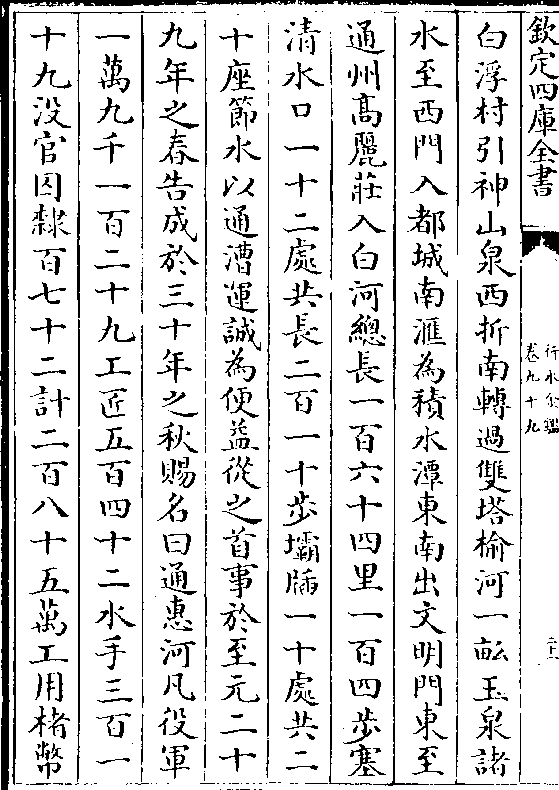 欽定四庫全書
行水金鑑
卷九十九
白浮村引神山泉西折南轉過雙塔榆河一畝玉泉諸
水至西門入都城南滙為積水潭東南出文明門東至
通州髙麗莊入白河總長一百六十四里一百四步塞
清水口一十二處共長二百一十步壩牐一十處共二
十座節水以通漕運誠為便益從之首事於至元二十
九年之春告成於三十年之秋賜名曰通惠河凡役軍
一萬九千一百二十九工匠五百四十二水手三百一
十九没官囚隸百七十二計二百八十五萬工用楮幣